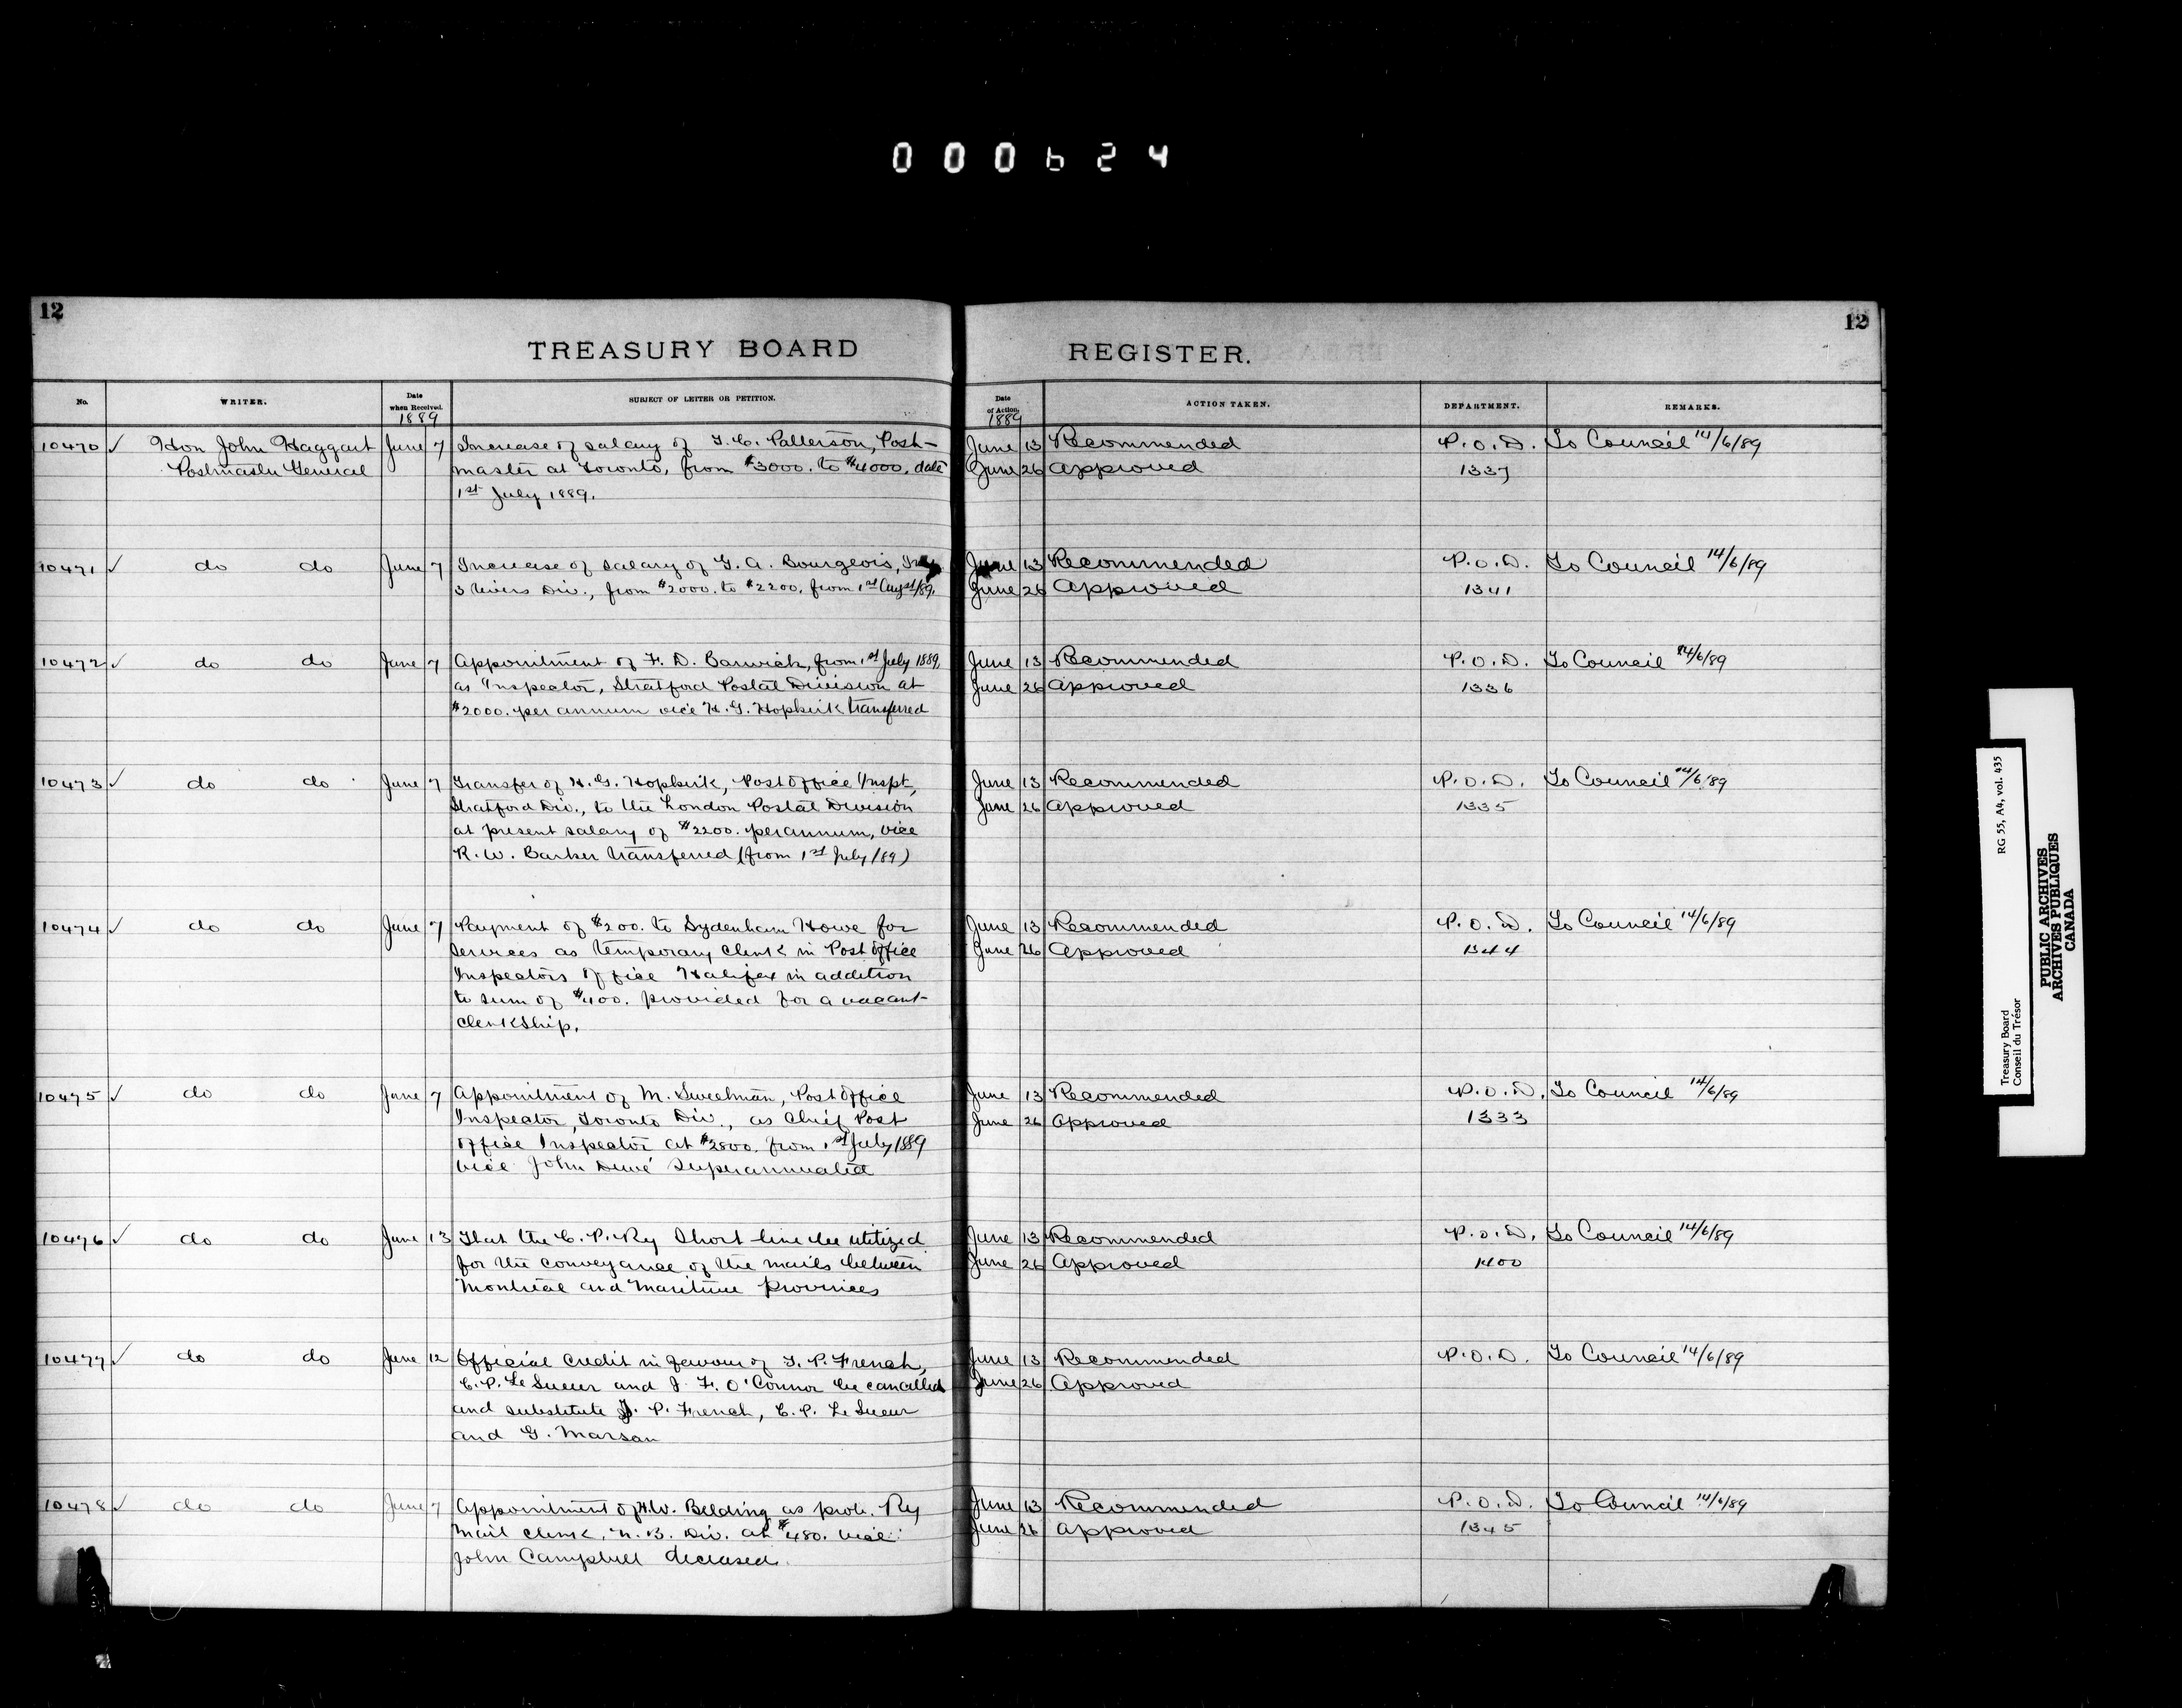 000624
12
12
TREASURY BOARD REGISTER.
No. WRITER. Date when Received. SUBJECT OF LETTER OR PETITION. Date of Action. ACTION TAKEN. DEPARTMENT. REMARKS.
1889 1889
10470 ✓ Hon John Haggart June 7 Increase of salary of T. C. Patterson, Post- June 13 Recommended P.O.D. To Council 14/6/89
Postmaster General master at Toronto, from $3000. to $4000. date June 26 Approved 1337
1st July 1889.
10471 ✓ do do June 7 Increase of salary of G. A. Bourgeois, June 13 Recommended P.O.D. To Council 14/6/89
3 Rivers Div., from $2000. to $2200. from 1st Augst/89. June 26 Approved 1341
10472 ✓ do do June 7 Appointment of F. D. Barwick, from 1st July 1889, June 13 Recommended P.O.D. To Council 14/6/89
as Inspector, Stratford Postal Division at June 26 Approved 1336
$2000. per annum vice H. G. Hopkirk transferred
10473 ✓ do do June 7 Transfer of H. G. Hopkirk, Post Office Inspt, June 13 Recommended P.O.D. To Council 14/6/89
Stratford Div., to the London Postal Division June 26 Approved 1335
at present salary of $2200. per annum, vice
R. W. Barker transferred (from 1st July/89)
10474 ✓ do do June 7 Payment of $200. to Sydenham Howe for June 13 Recommended P.O.D. To Council 14/6/89
services as temporary clerk in Post Office June 26 Approved 1344
Inspectors Office Halifax in addition
to sum of $400. provided for a vacant
clerkship.
10475 ✓ do do June 7 Appointment of M. Sweetman, Post Office June 13 Recommended P.O.D. To Council 14/6/89
Inspector, Toronto Div., as Chief Post June 26 Approved 1333
Office Inspector at $2800. from 1st July 1889
vice John Dewé Superannuated
10476 ✓ do do June 13 That the C. P. Ry Short line be utilized June 13 Recommended P.O.D. To Council 14/6/89
for the conveyance of the mails between June 26 Approved 1400
Montreal and Maritime Provinces
10477 ✓ do do June 12 Official Credit in favour of T. P. French, June 13 Recommended P.O.D. To Council 14/6/89
C. P. Le Sueur and J. F. O'Connor be cancelled June 26 Approved
and substitute T. P. French, C. P. Le Sueur
and G. Marsan
10478 ✓ do do June 7 Appointment of H.W. Belding as prob. Ry June 13 Recommended P.O.D. To Council 14/6/89
Mail Clerk, N. B. Div. at $480. vice June 26 Approved 1345
John Campbell deceased.
Treasury Board RG 55, A4, vol. 435
Conseil du Trésor
PUBLIC ARCHIVES
ARCHIVES PUBLIQUES
CANADA